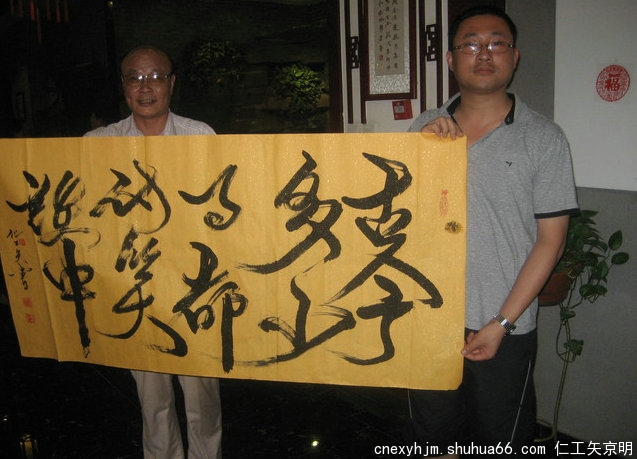 古今
多少
事都
付笑
谈中
福
cnexyhjm.shuhua66.com 仁工矢京明